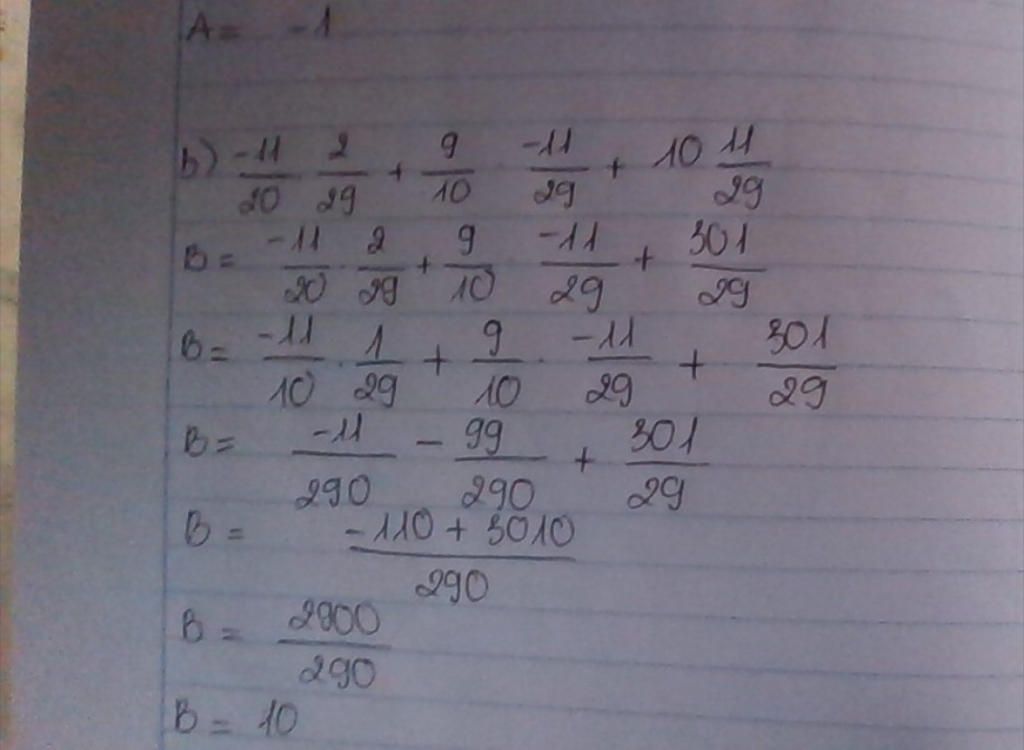 A = -1
B) -11/20 2/29 + 9/10 · -11/29 + 10 11/29
B = -11/20 · 2/29 + 9/10 · -11/29 + 301/29
B = -11/10 · 1/29 + 9/10 · -11/29 + 301/29
B = -11/290 - 99/290 + 301/29
B = -110 + 3010/290
B = 2900/290
B = 10